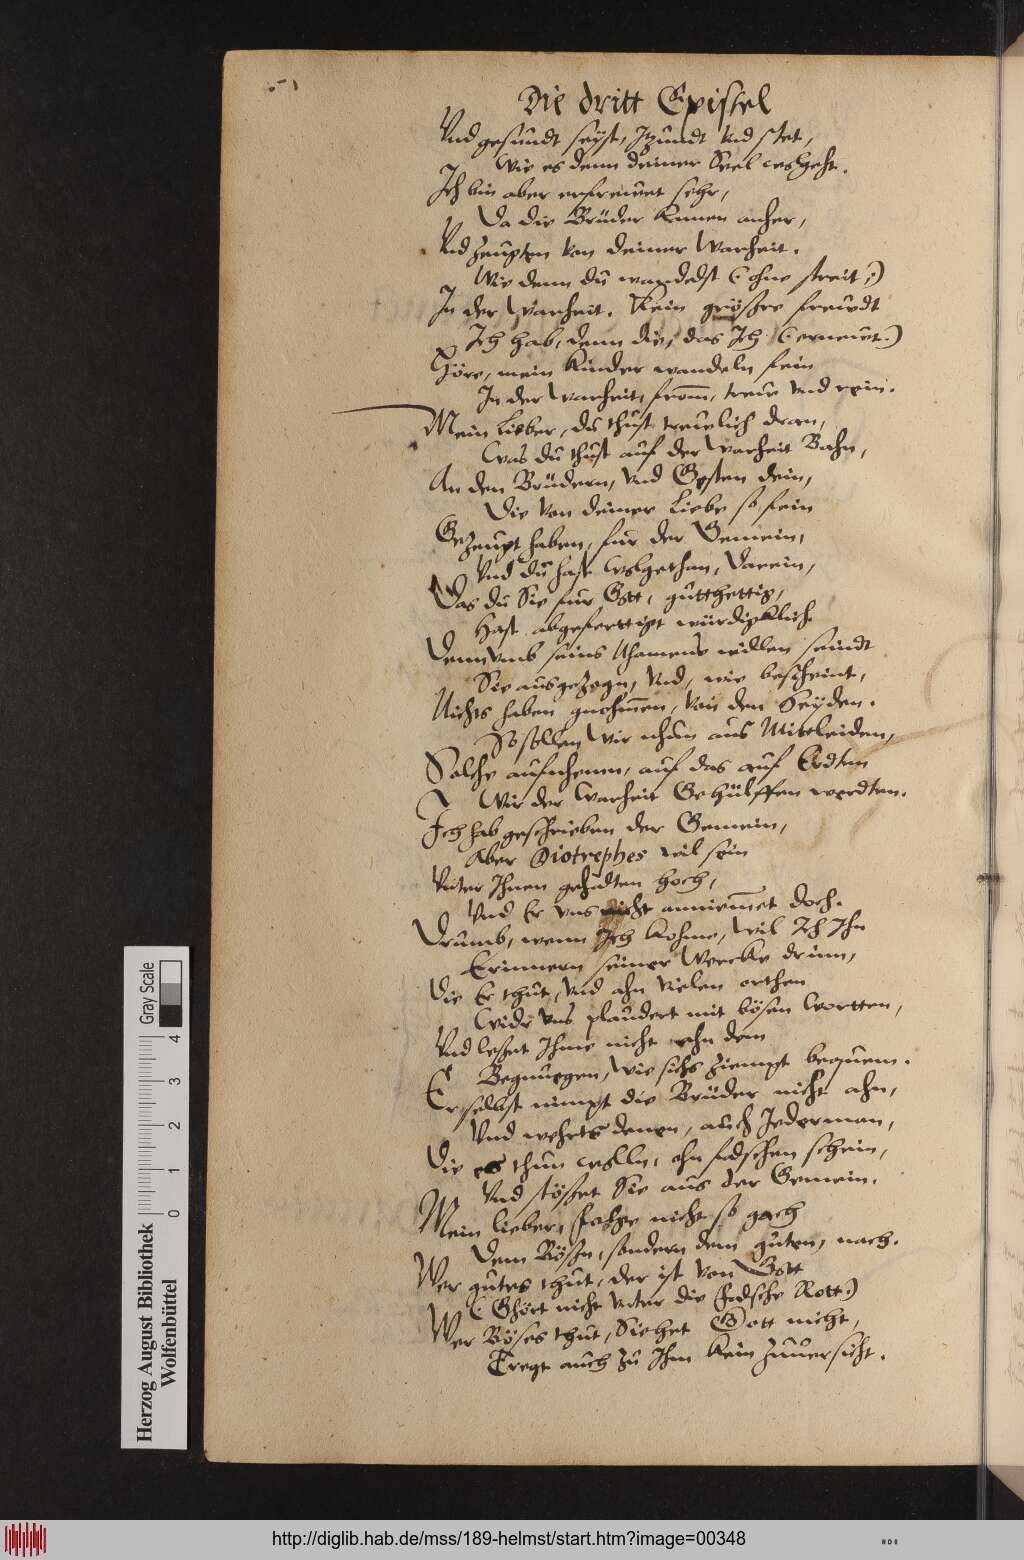 Die dritt Epistel
Vnd gesundt seyst, Itzundt vnd stet,
Wie es denn deiner Seel wolgeht.
Ich bin aber erfreuet sehr,
Da die Brüder kamen anher,
Vnd zeugten von deiner Warheit.
Wie denn du wandelst (ohne streit,)
In der Warheit. Kein grössre freudt
Ich hab, denn die, das Ich (erneuet.)
Höre, mein Kinder wandeln fein
In der Warheit, from, treue vnd rein.
Mein Lieber, du thust treulich dran,
Was du thust auf der Warheit Bahn,
An den Brüdern, vnd Gesten dein,
Die von deiner Liebe so fein
Gezeugt haben, fur der Gemein,
Vnd du hast wolgethan, darein,
Das du Sie fur Gott,
Hast abgefertigt würdigklich
Denn vmb seins Nhamens willen seindt
Sie ausgezogn, vnd, wie bescheint,
Nichts haben gnohmen, von den Heyden.
So sollen Wir nhun aus Mittleiden,
Solche aufnhemen, auf das auf Erdten
Wir der Warheit Gehülffen werdten.
Ich hab geschrieben der Gemein,
Aber Diotrephes wil sein
Vnter Ihnen gehalten hoch,
Vnd Er vns nicht anniemet doch.
Drumb, wenn Ich kohme, wil Ich Ihn
Erinnern seiner Wercke drinn,
Die Er thut, vnd ahn vielen orthen
Widr vns plaudert mit bösen Wortten,
Vnd lesset Ihme nicht ahn dem
Begnuegen, wie sichs ziempt bequem.
Er selbst nimpt die Brüder nicht ahn,
Vnd wehrts denen, auch Jederman,
Die es thun wolln, ohn falschen schein,
Vnd stösset Sie aus der Gemein.
Mein lieber, folge nicht so gach
Dem Bösen, sondern dem guten, nach.
Wer gutes thut, der ist von Gott
(Ghört nicht vnter die falsche Rott.)
Wer Böses thut, Siehet Gott nicht,
Tregt auch zu Ihm kein zuuersicht.
Herzog August Bibliothek
Wolfenbüttel
0 1 2 3 4
Gray Scale
http://diglib.hab.de/mss/189-helmst/start.htm?image=00348